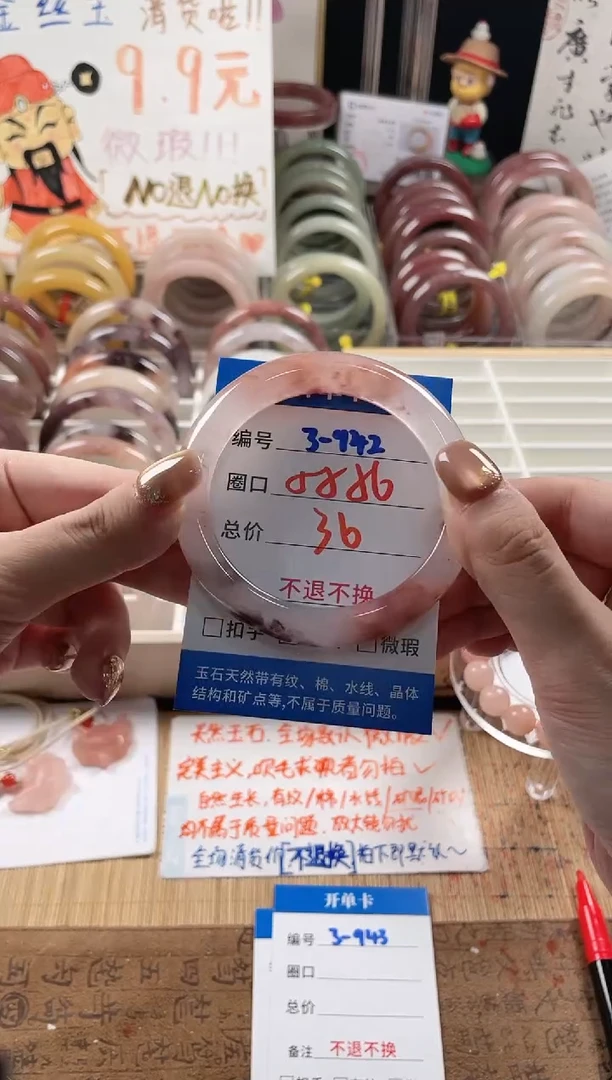 金丝玉 清货啦!!
9.9元
微瑕!!!
NO退NO换
编号 3-942
圈口
总价 36
不退不换
扣手
微瑕
玉石天然带有纹、棉、水线、晶体
结构和矿点等,不属于质量问题。
天然玉石.全场默认微瑕
完美主义,吹毛求疵者勿拍
自然生长,有纹/棉/水线/
均不属于质量问题.放大镜勿扰
全场清货价[不退换]拍下即默认~
开单卡
编号 3-943
圈口
总价
备注 不退不换